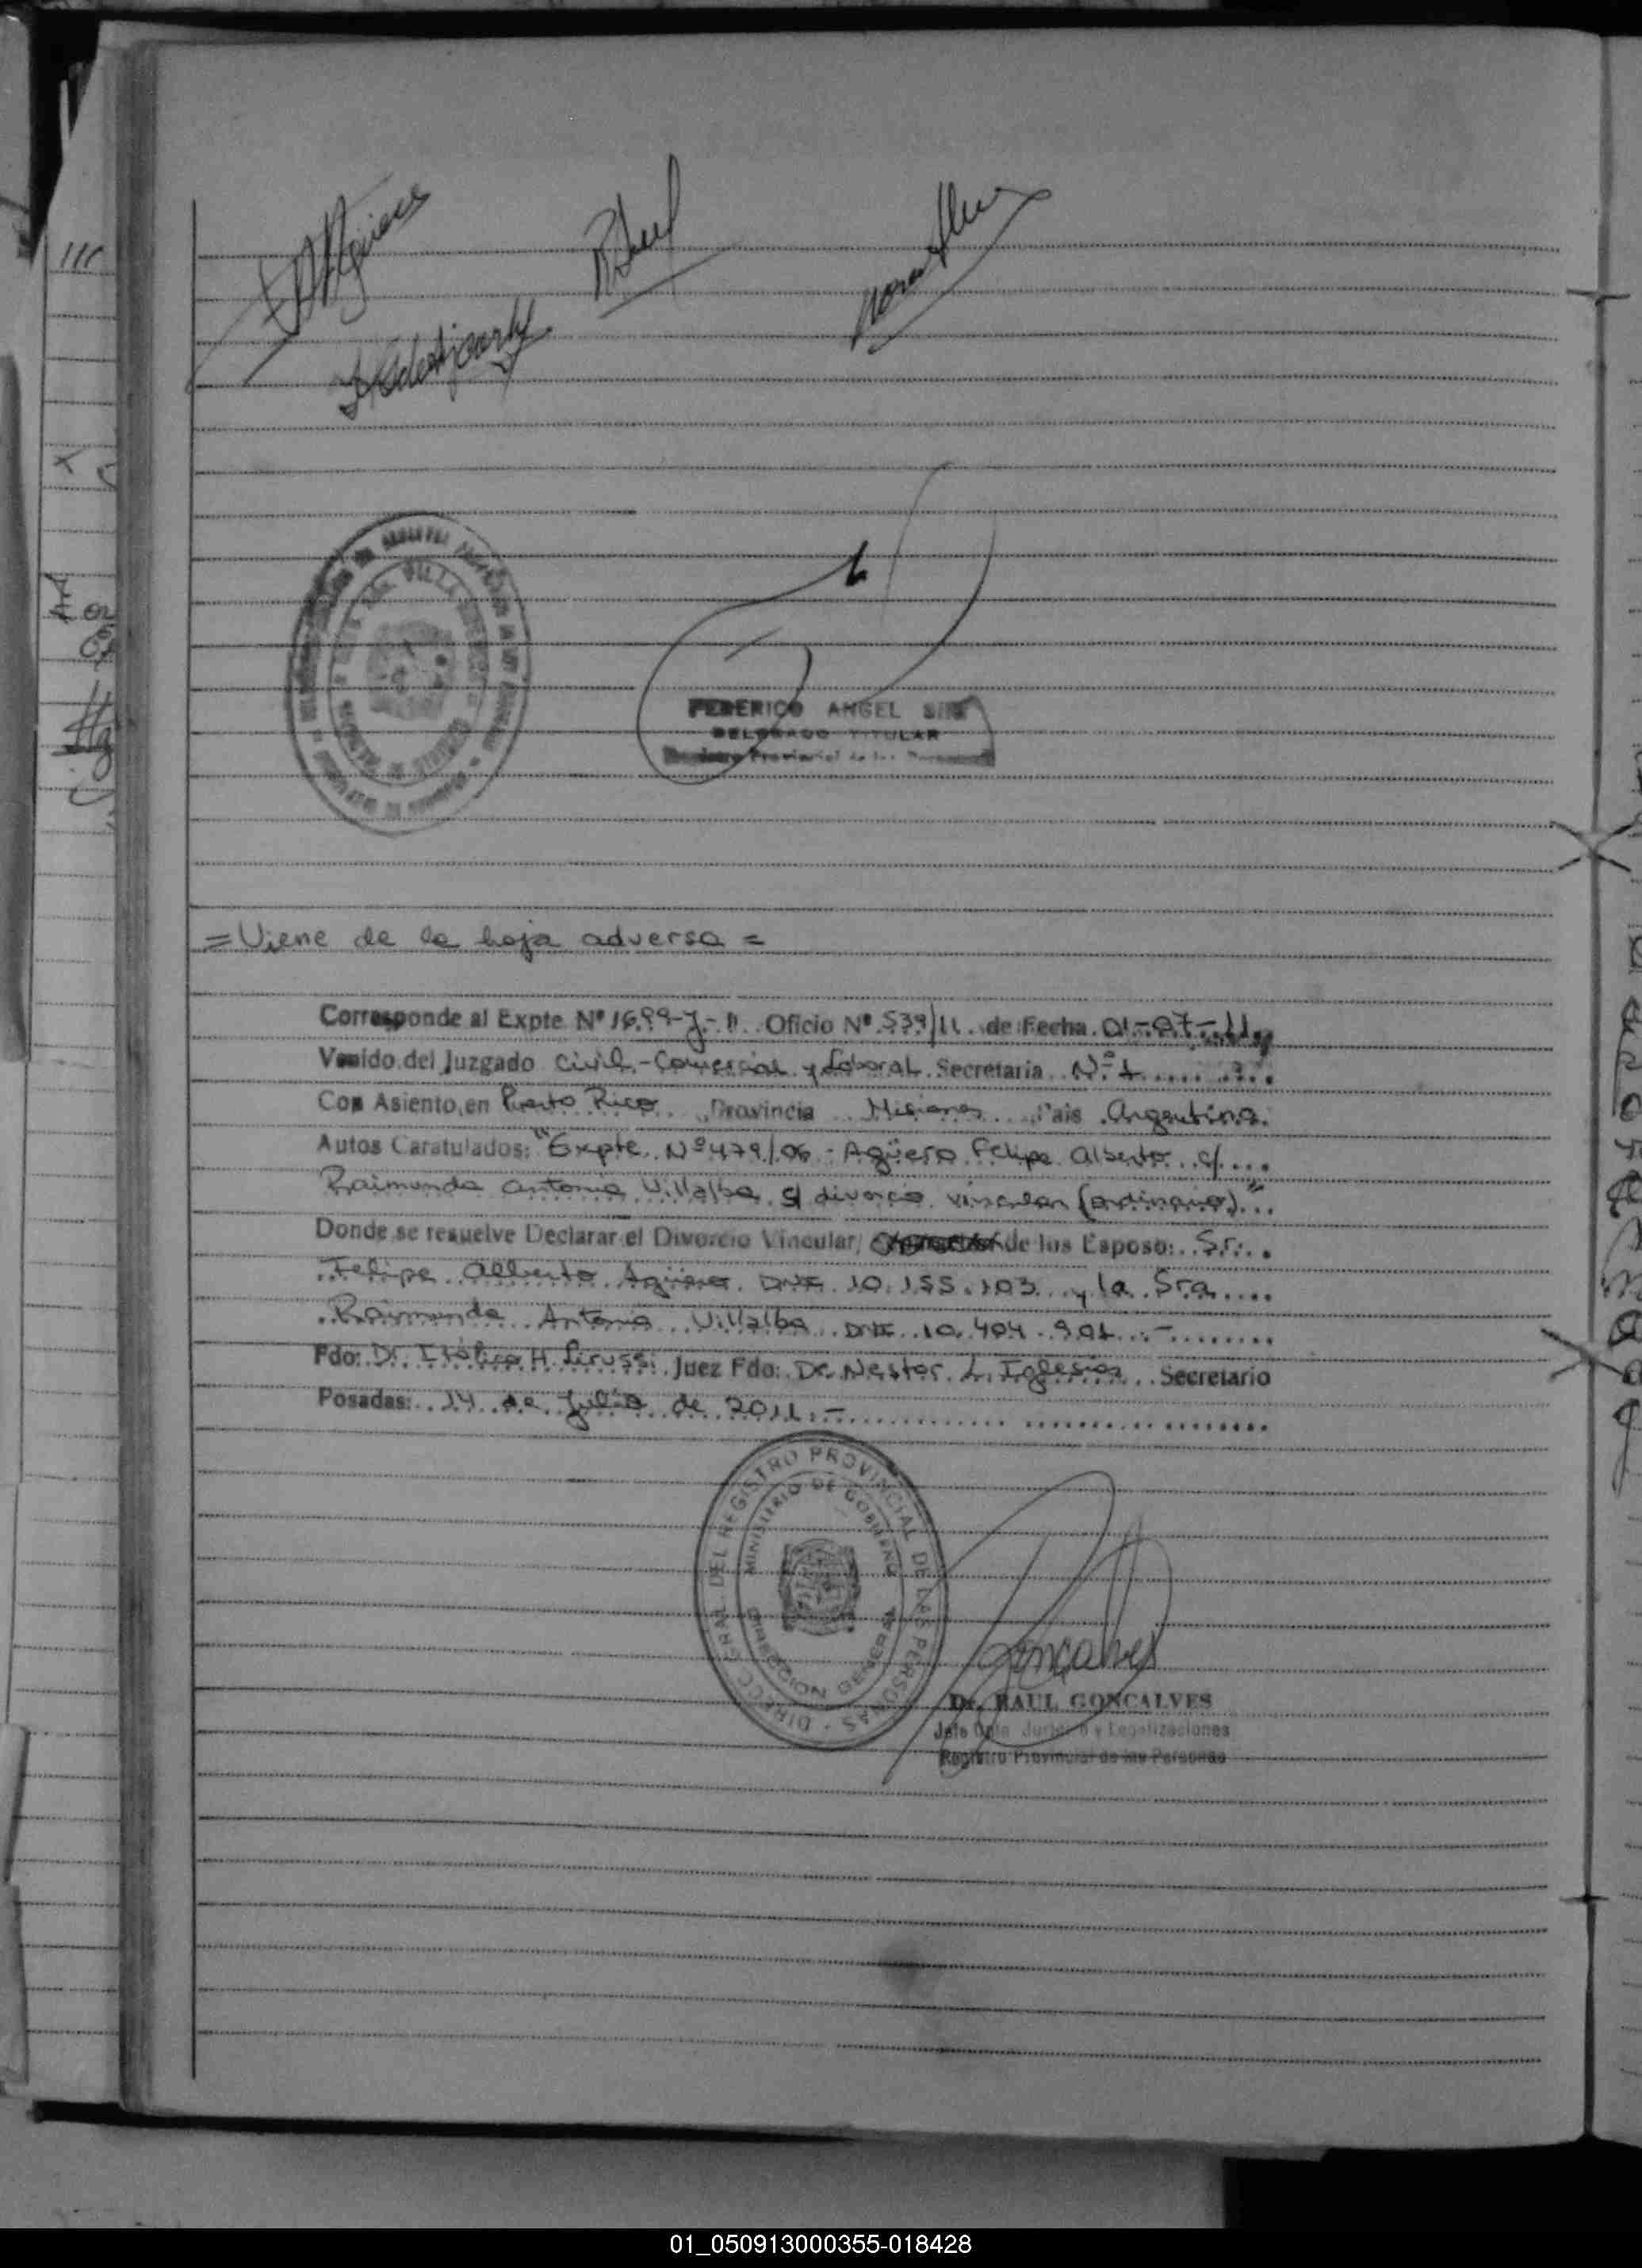 FEDERICO ANGEL
DELEGADO TITULAR
Registro Provincial de las Personas
= Viene de la hoja adversa =
Corresponde al Expte Nº 1699-J-11. Oficio Nº 539/11. de Fecha 01-07-11
Venido del Juzgado Civil-Comercial y Laboral. Secretaria Nº 1
Con Asiento en Puerto Rico Provincia Misiones Pais Argentina.
Autos Caratulados: "Expte. Nº 479/06 - Agüero Felipe Alberto c/
Raimunda Antonia Villalba s/ divorcio vincular (ordinario)"
Donde se resuelve Declarar el Divorcio Vincular, de los Esposo: Sr.
Felipe Alberto Agüero DNI 10.155.103 y la Sra.
Raimunda Antonia Villalba DNI 10.404.901.-
Fdo: Dr. Itálico H. Juez Fdo: Dr. Nestor L. Iglesias Secretario
Posadas: 14 de Julio de 2011.-
DIRECC. GRAL. DEL REGISTRO PROVINCIAL DE LAS PERSONAS
MINISTERIO DE GOBIERNO
DIRECCION GENERAL
Goncalves
Dr. RAUL GONCALVES
Jefe Dpto Jurídico y Legalizaciones
Registro Provincial de las Personas
01_050913000355-018428